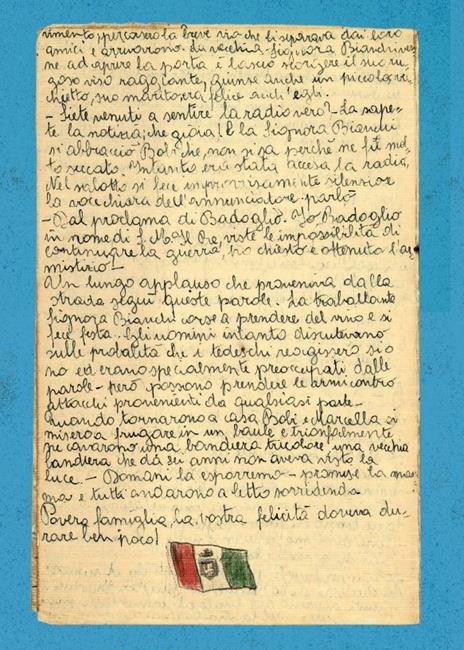 vimento, percorsero la breve via che li separava dai loro
amici e arrivarono. La vecchia Signora Bianchi ven
ne ad aprire la porta e lasciò scorgere il suo ru-
goso viso raggiante, giunse anche un piccolo vec
chietto, suo marito era felice anch'egli.
- Siete venuti a sentire la radio vero? - La sape-
te la notizia; che gioia! E la Signora Bianchi
si abbracciò Bobi che, non si sa perchè ne fu mol
to seccato. Intanto era stata accesa la radio.
Nel salotto si fece improvvisamente silenzio e
la voce chiara dell'annunciatore parlò
- Dal proclama di Badoglio. Io Badoglio
in nome di S. M. Il Re, viste le impossibilità di
continuare la guerra, ho chiesto e ottenuto l'ar
mistizio! -
Un lungo applauso che proveniva dalla
strada seguì queste parole. La traballante
Signora Bianchi corse a prendere del vino e si
fece festa. Gli uomini intanto discutevano
sulle probabilità che i tedeschi reagissero si o
no ed erano specialmente preoccupati dalle
parole - però possono prendere le armi contro
attacchi provenienti da qualsiasi parte -
Quando tornarono a casa Bobi e Marcella si
misero a frugare in un baule e trionfalmente
ne cavarono una bandiera tricolore una vecchia
bandiera che da sei anni non aveva visto la
luce. - Domani la esporremo - promise la mam
ma e tutti andarono a letto sorridendo
Povera famiglia la vostra felicità doveva du-
rare ben poco!